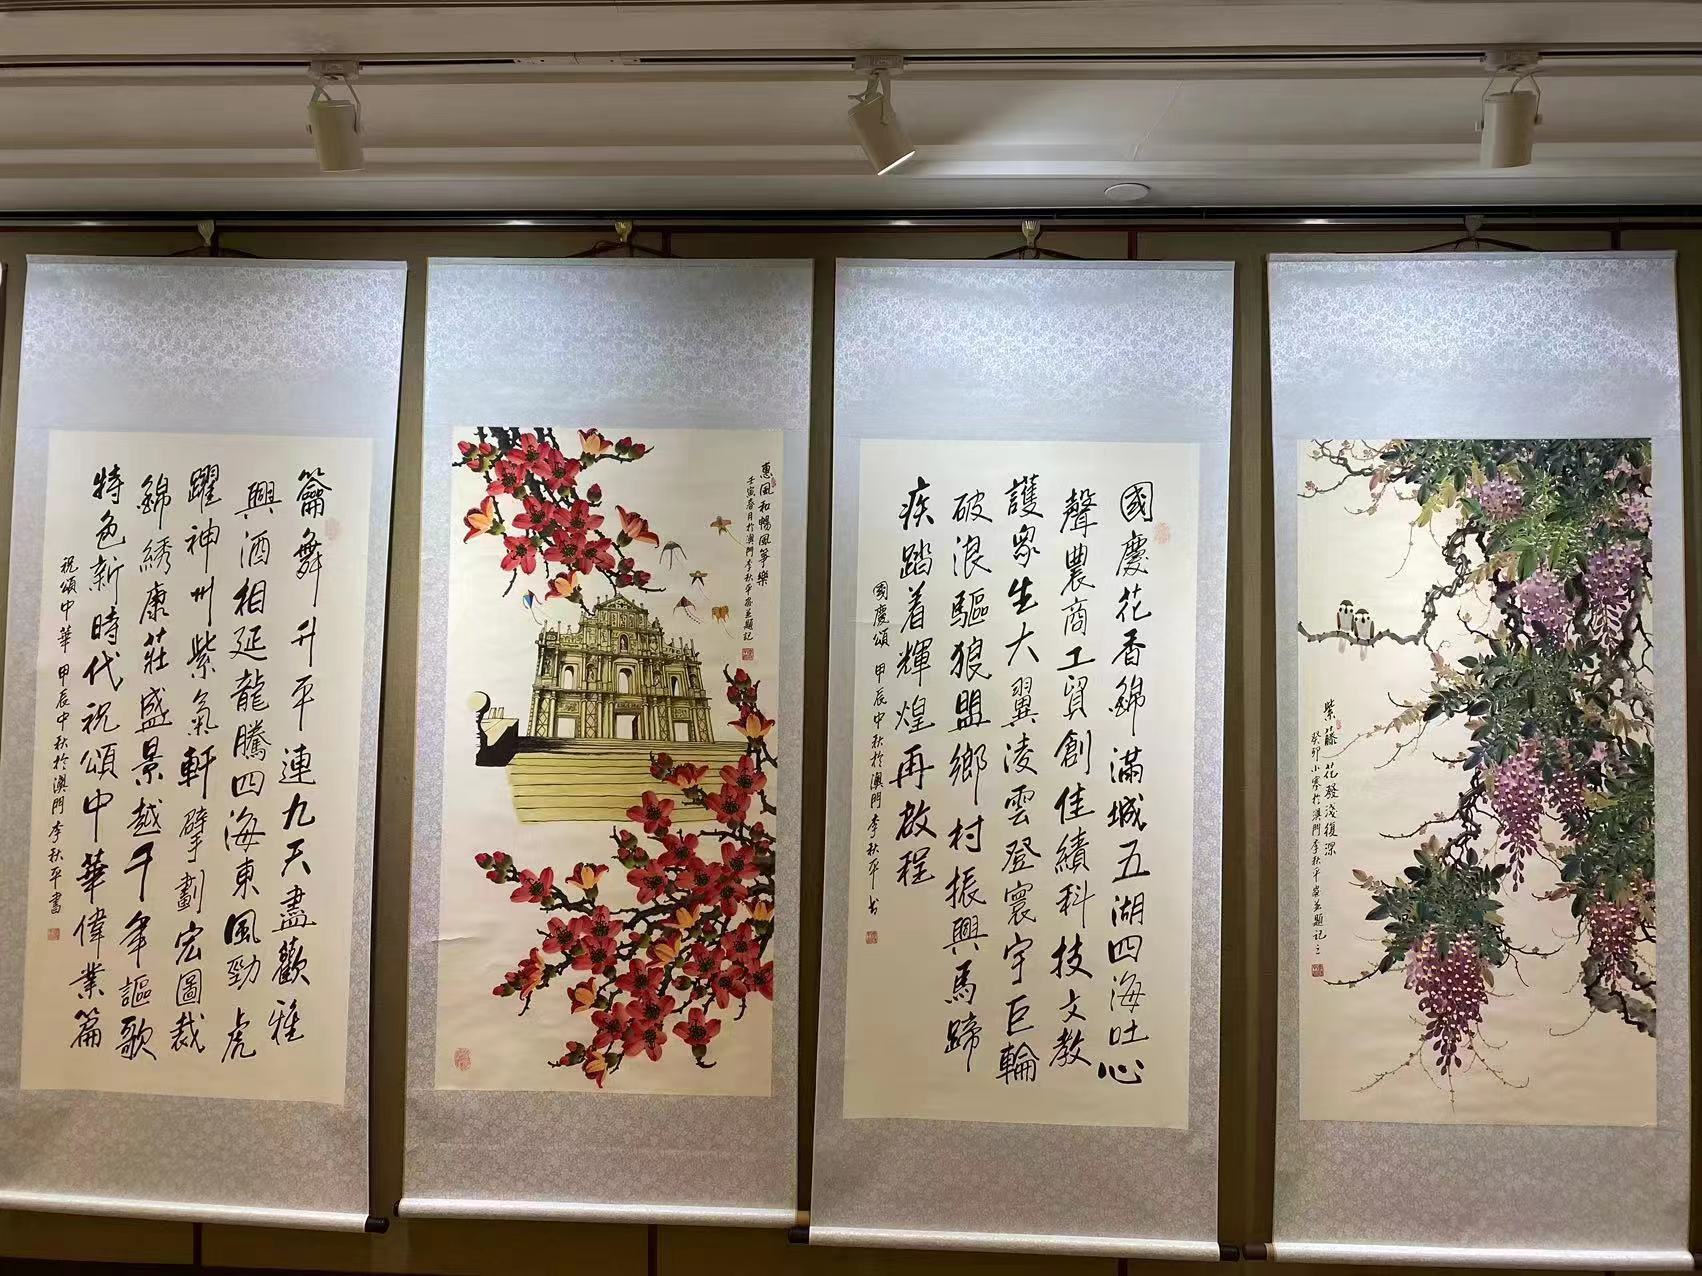 籥舞升平連九天盡歡雅
興酒相延龍騰四海東風勁虎
躍神州紫氣軒擘劃宏圖裁
錦綉康莊盛景越千年謳歌
特色新時代祝頌中華偉業篇
祝頌中華 甲辰中秋於澳門李秋平書
惠風和暢風箏樂
壬寅春月於澳門李秋平寫並題記
國慶花香錦滿城五湖四海吐心
聲農商工貿創佳績科技文教
護眾生大翼凌雲登寰宇巨輪
破浪驅狼盟鄉村振興馬蹄
疾踏着輝煌再啟程
國慶頌 甲辰中秋於澳門李秋平书
紫藤花發淺復深
癸卯小寒於澳門李秋平寫並題記之三